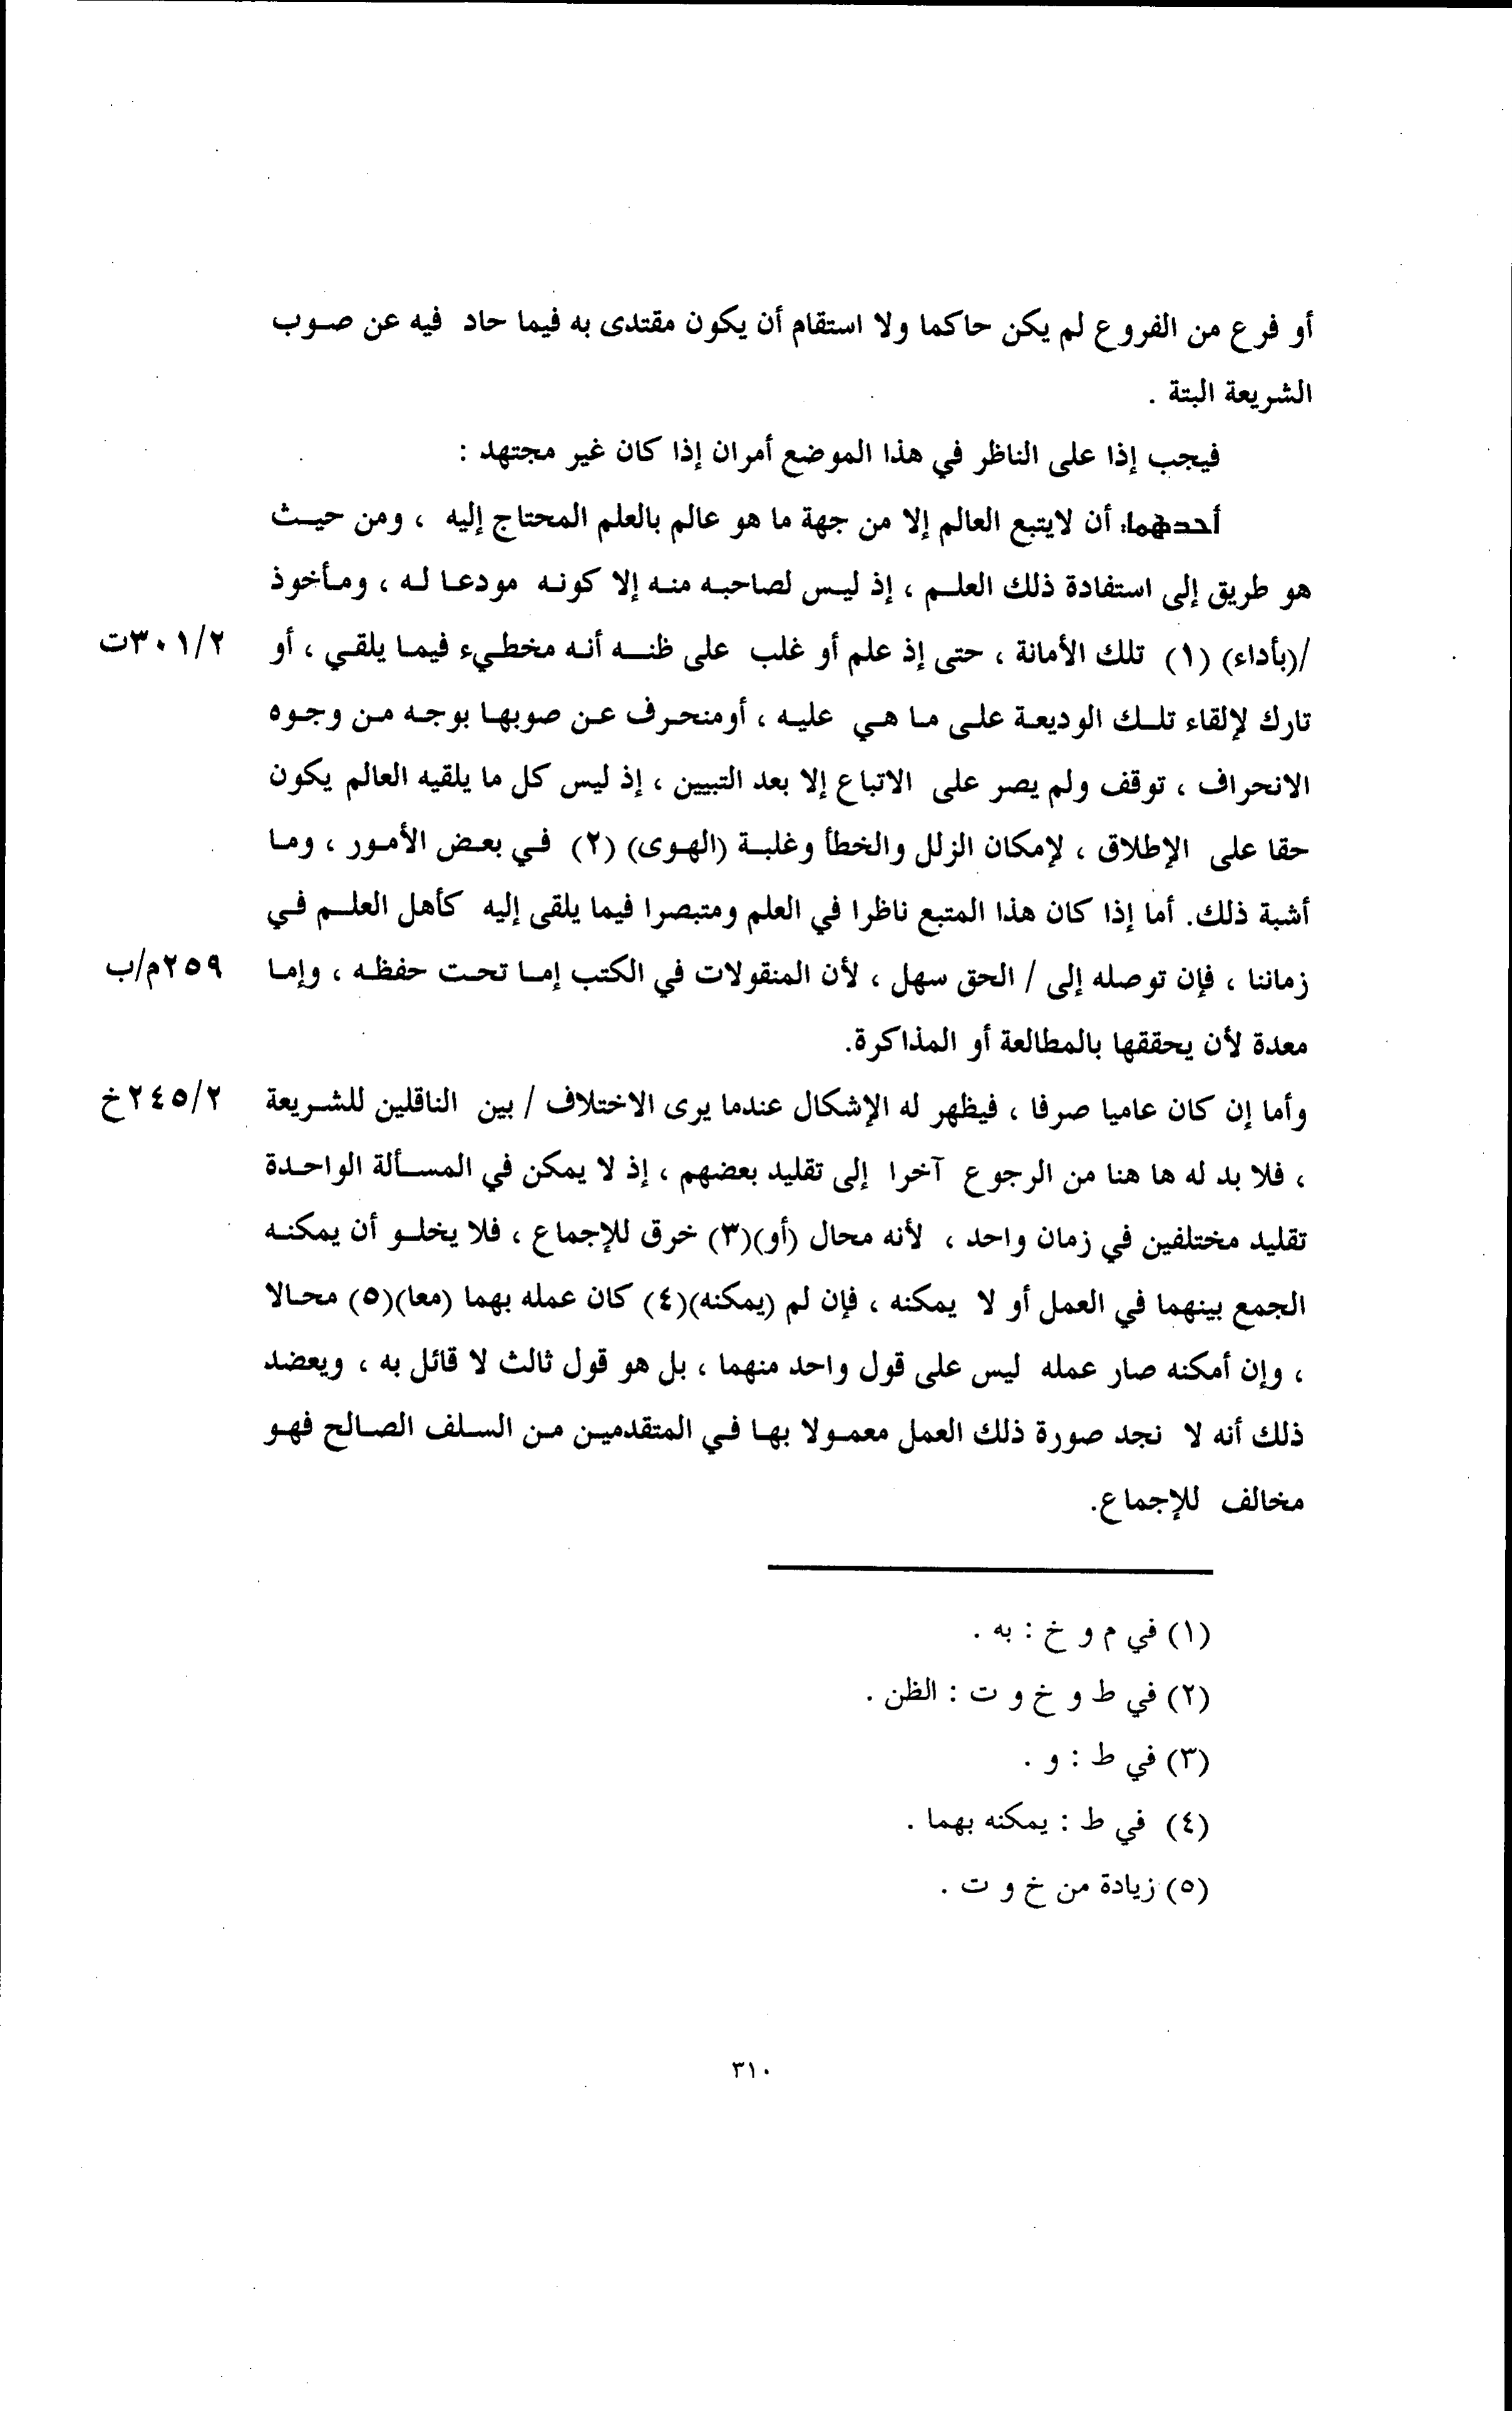 أو فرع من الفروع لم يكن حاكما ولا استقام أن يكون مقتدى به فيما حاد فيه عن صوب
الشريعة البتة .
فيجب إذا على الناظر في هذا الموضع أمران إذا كان غير مجتهد :
أحدهما: أن لايتبع العالم إلا من جهة ما هو عالم بالعلم المحتاج إليه ، ومن حيث
هو طريق إلى استفادة ذلك العلم ، إذ ليس لصاحبه منه إلا كونه مودعا له ، ومأخوذ
/(بأداء) (١) تلك الأمانة ، حتى إذ علم أو غلب على ظنه أنه مخطيء فيما يلقي ، أو ٣٠١/٢ت
تارك لإلقاء تلك الوديعة على ما هي عليه ، أومنحرف عن صوبها بوجه من وجوه
الانحراف ، توقف ولم يصر على الاتباع إلا بعد التبيين ، إذ ليس كل ما يلقيه العالم يكون
حقا على الإطلاق ، لإمكان الزلل والخطأ وغلبة (الهوى) (٢) في بعض الأمور ، وما
أشبة ذلك. أما إذا كان هذا المتبع ناظرا في العلم ومتبصرا فيما يلقى إليه كأهل العلم في
زماننا ، فإن توصله إلى / الحق سهل ، لأن المنقولات في الكتب إما تحت حفظه ، وإما ٢٥٩م/ب
معدة لأن يحققها بالمطالعة أو المذاكرة.
وأما إن كان عاميا صرفا ، فيظهر له الإشكال عندما يرى الاختلاف / بين الناقلين للشريعة ٢٤٥/٢خ
، فلا بد له ها هنا من الرجوع آخرا إلى تقليد بعضهم ، إذ لا يمكن في المسألة الواحدة
تقليد مختلفين في زمان واحد ، لأنه محال (أو)(٣) خرق للإجماع ، فلا يخلو أن يمكنه
الجمع بينهما في العمل أو لا يمكنه ، فإن لم (يمكنه)(٤) كان عمله بهما (معا)(٥) محالا
، وإن أمكنه صار عمله ليس على قول واحد منهما ، بل هو قول ثالث لا قائل به ، ويعضد
ذلك أنه لا نجد صورة ذلك العمل معمولا بها في المتقدمين من السلف الصالح فهو
مخالف للإجماع.
(١) في م و خ : به .
(٢) في ط و خ و ت : الظن .
(٣) في ط : و .
(٤) في ط : يمكنه بهما .
(٥) زيادة من خ و ت .
٣١٠